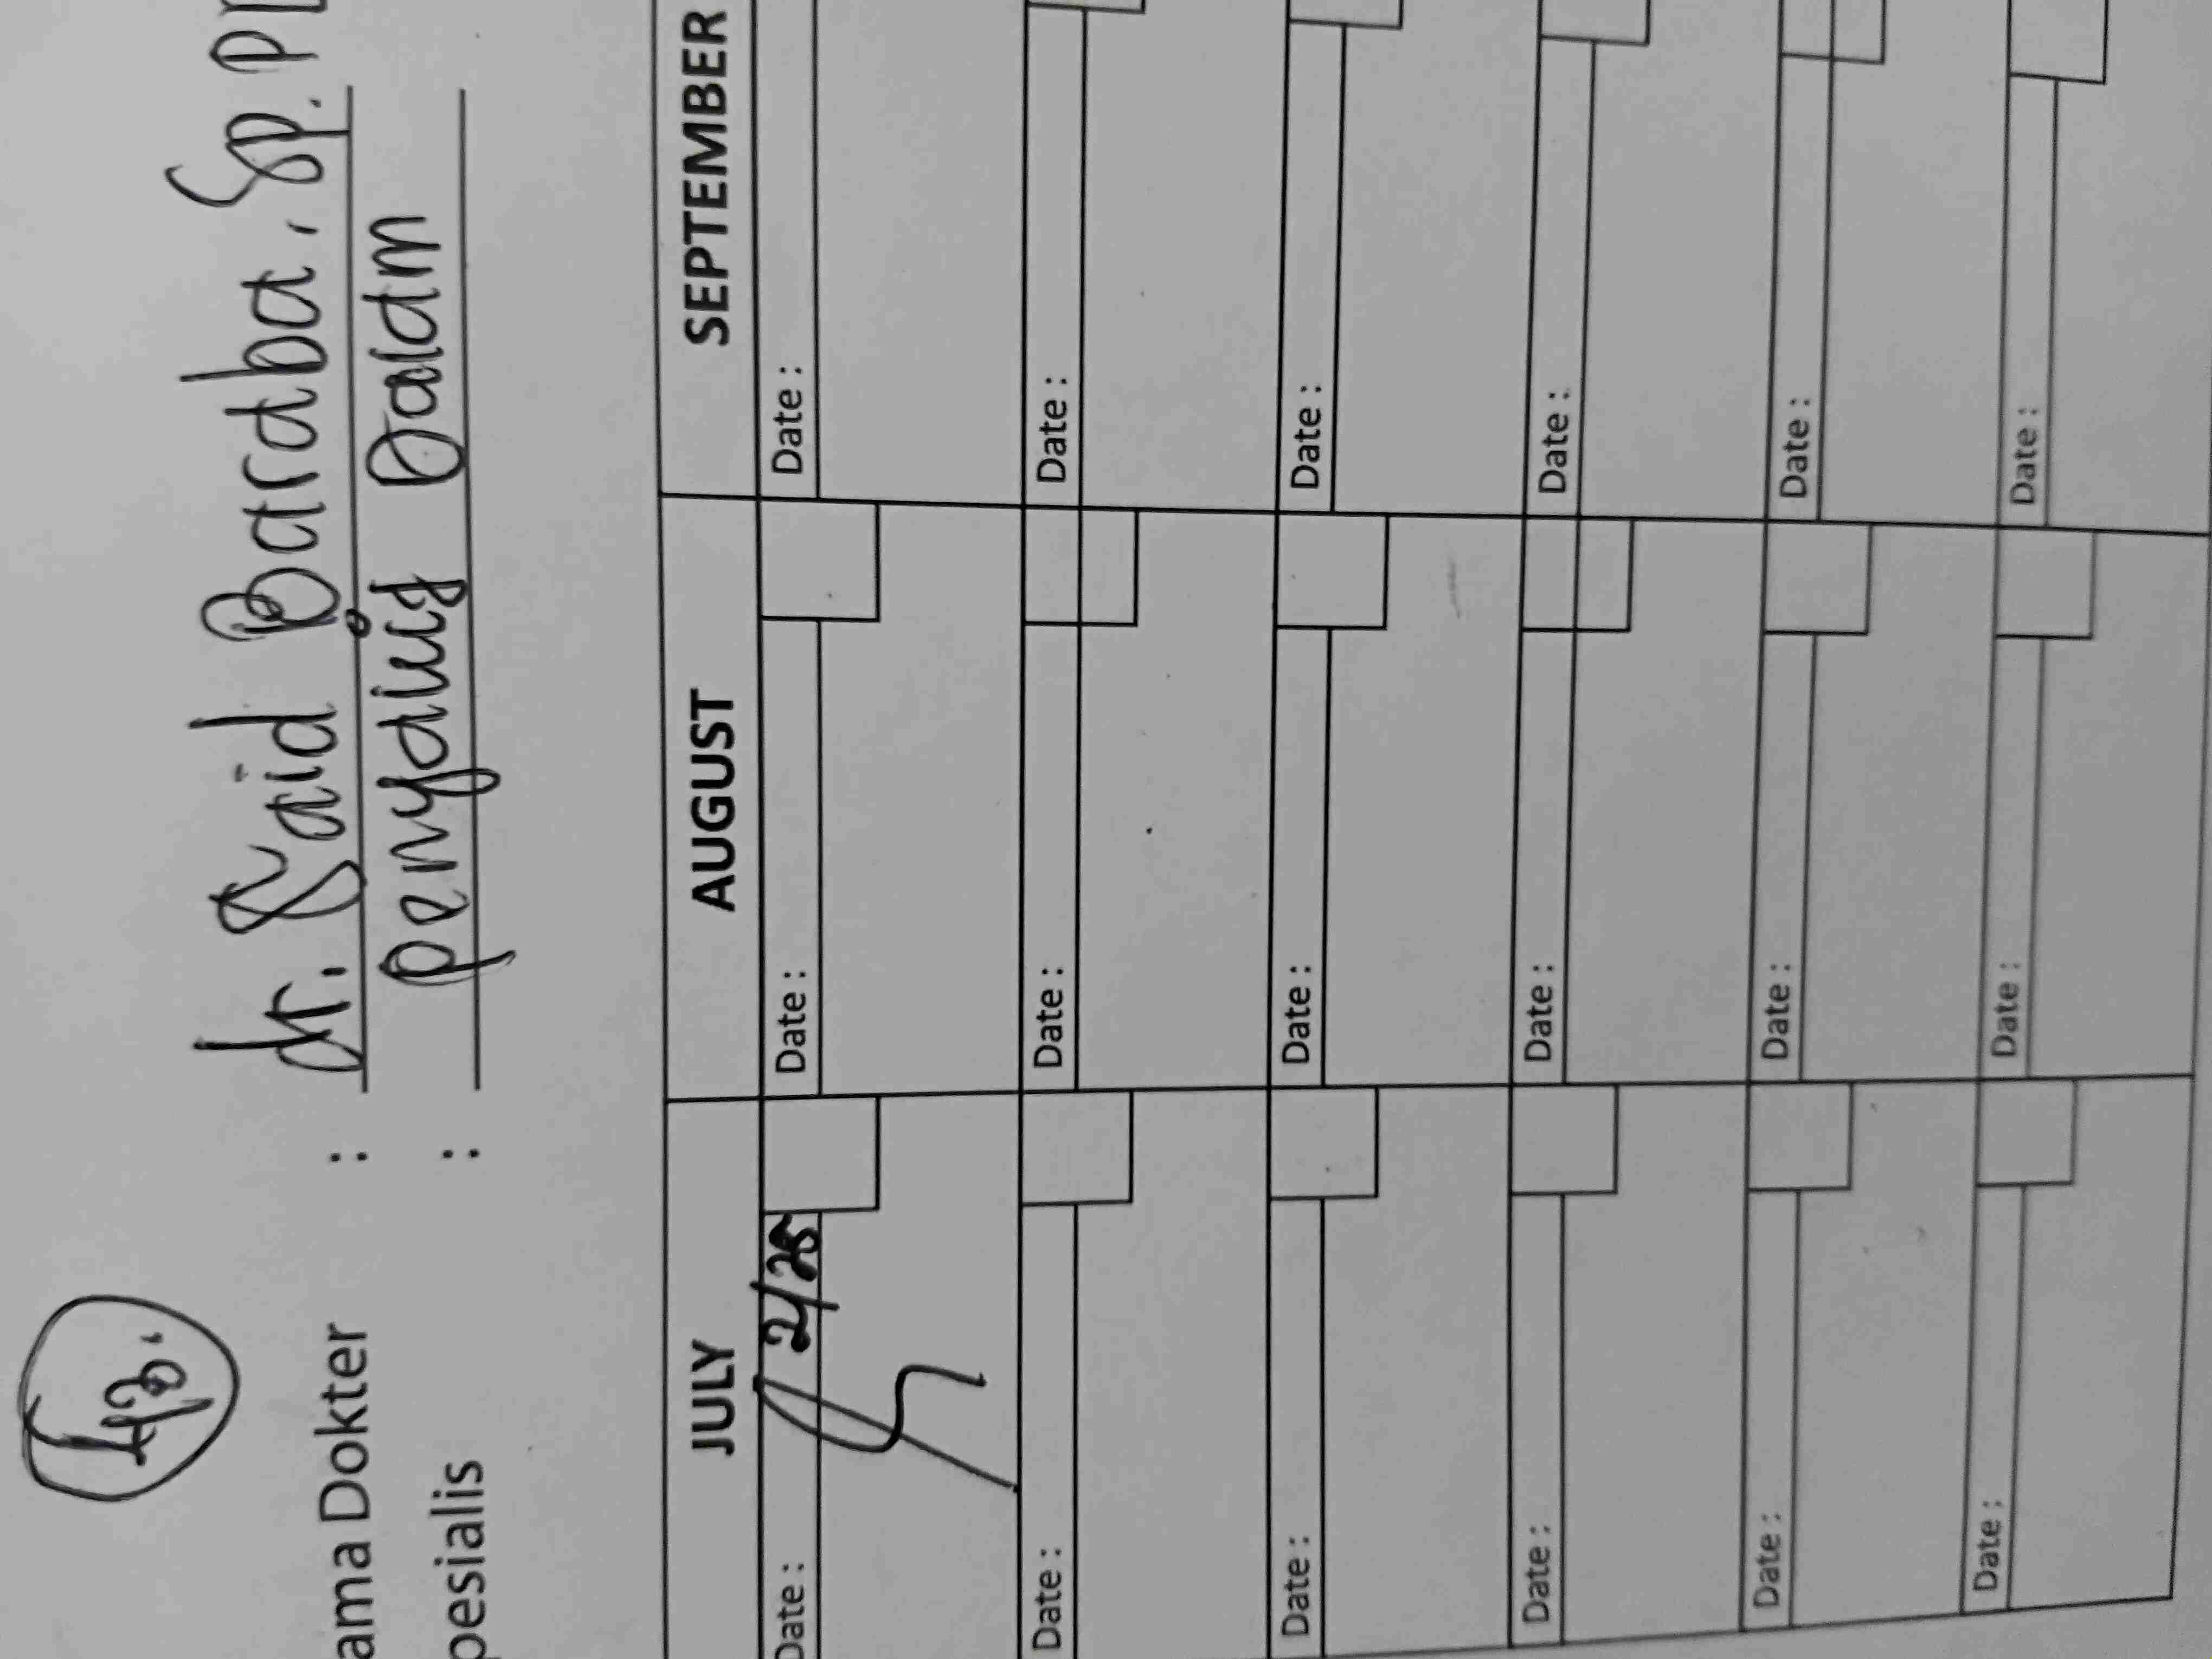 ama Dokter : dr. Said Baraba, Sp. P
pesialis : penyakit Dalam
JULY AUGUST SEPTEMBER
Date : 2/25 Date : Date :
Date : Date : Date :
Date : Date : Date :
Date : Date : Date :
Date : Date : Date :
Date : Date : Date :